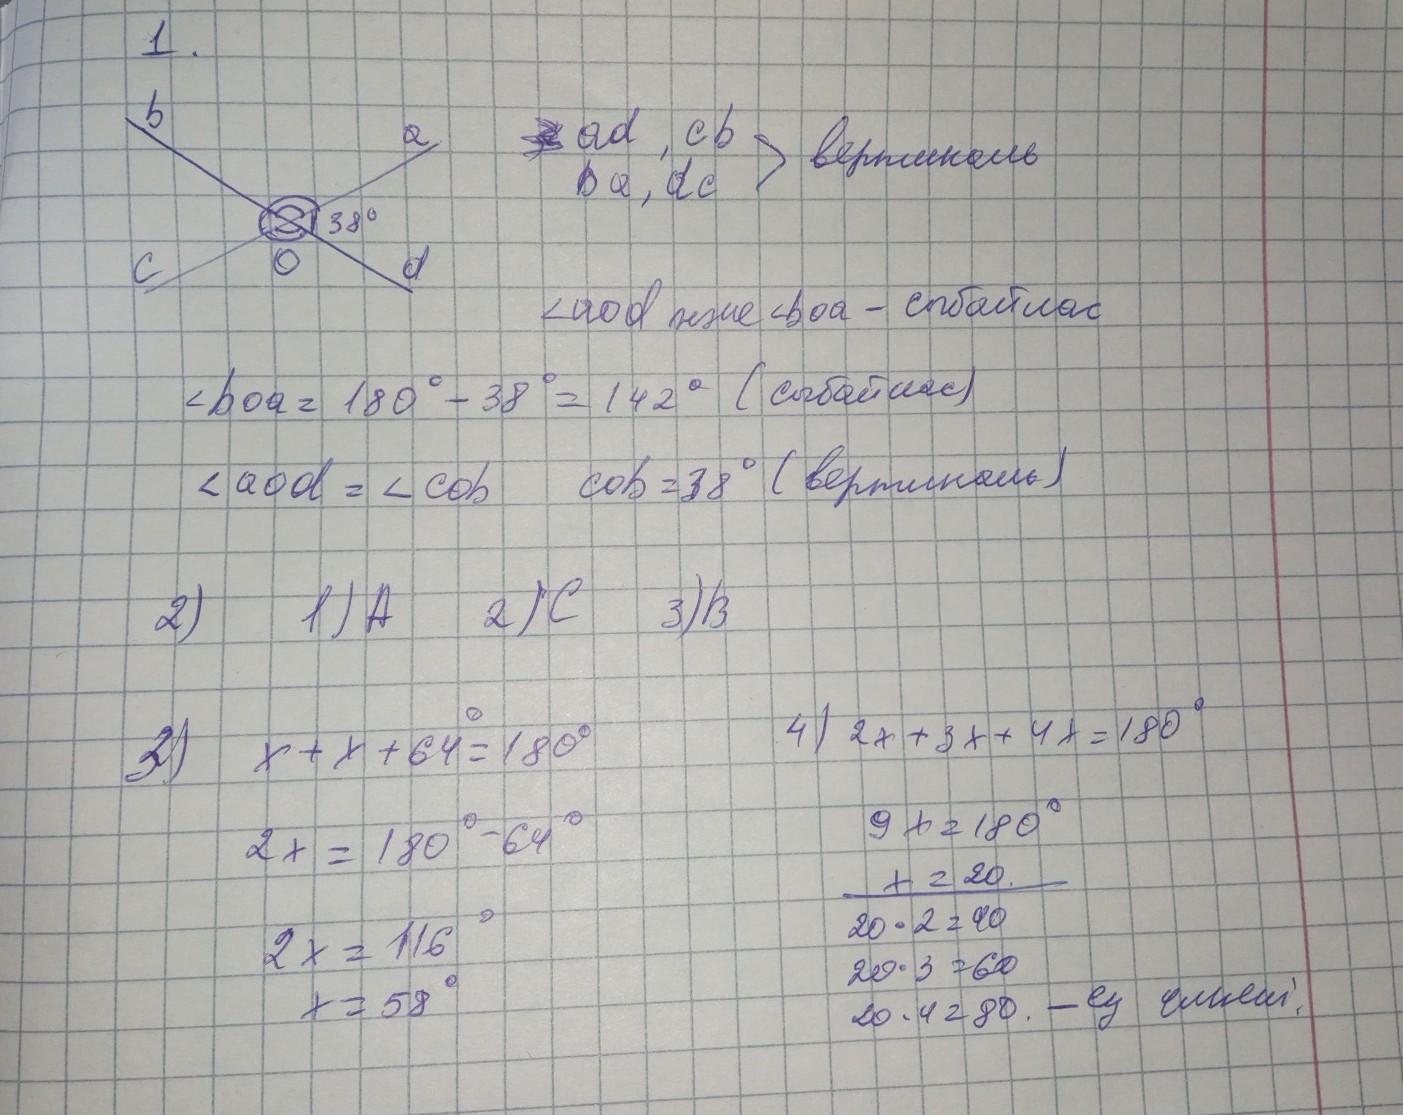 1.
b
a
38°
c
O
d
ad, cb
ba, dc
вертикаль
<aod және <boa - сыбайлас
<boa = 180° - 38° = 142° (сыбайлас)
<aod = <cob cob = 38° (вертикаль)
2) 1) A 2) C 3) B
3) x + x + 64° = 180°
2x = 180° - 64°
2x = 116°
x = 58°
4) 2x + 3x + 4x = 180°
9x = 180°
x = 20.
20 · 2 = 40
20 · 3 = 60
20 · 4 = 80. - ең үлкені.